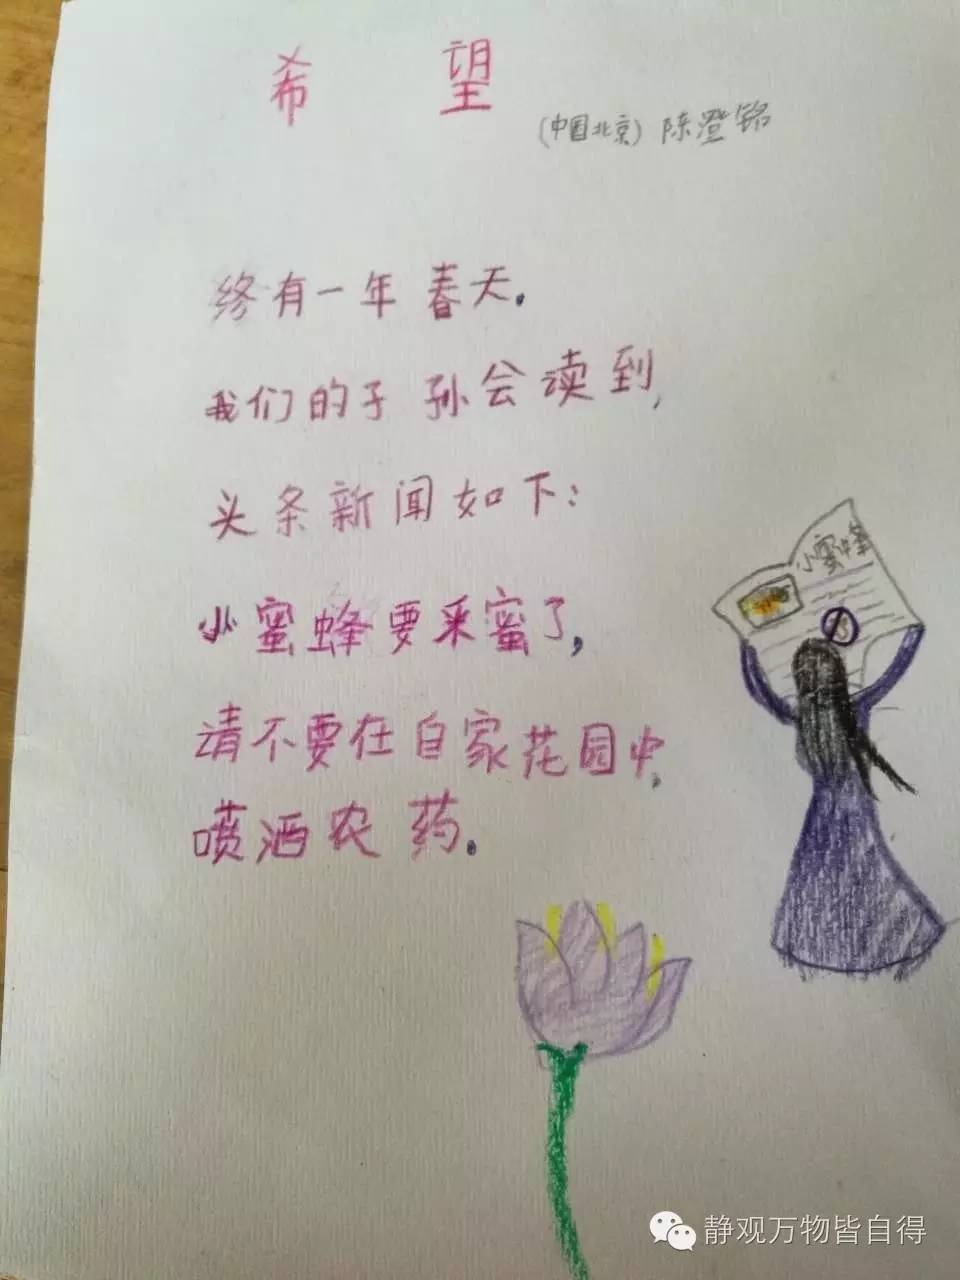 希望
(中国北京) 陈澄铭
终有一年春天.
我们的子孙会读到,
头条新闻如下:
小蜜蜂要采蜜了,
请不要在自家花园中,
喷洒农药.
小蜜蜂
静观万物皆自得